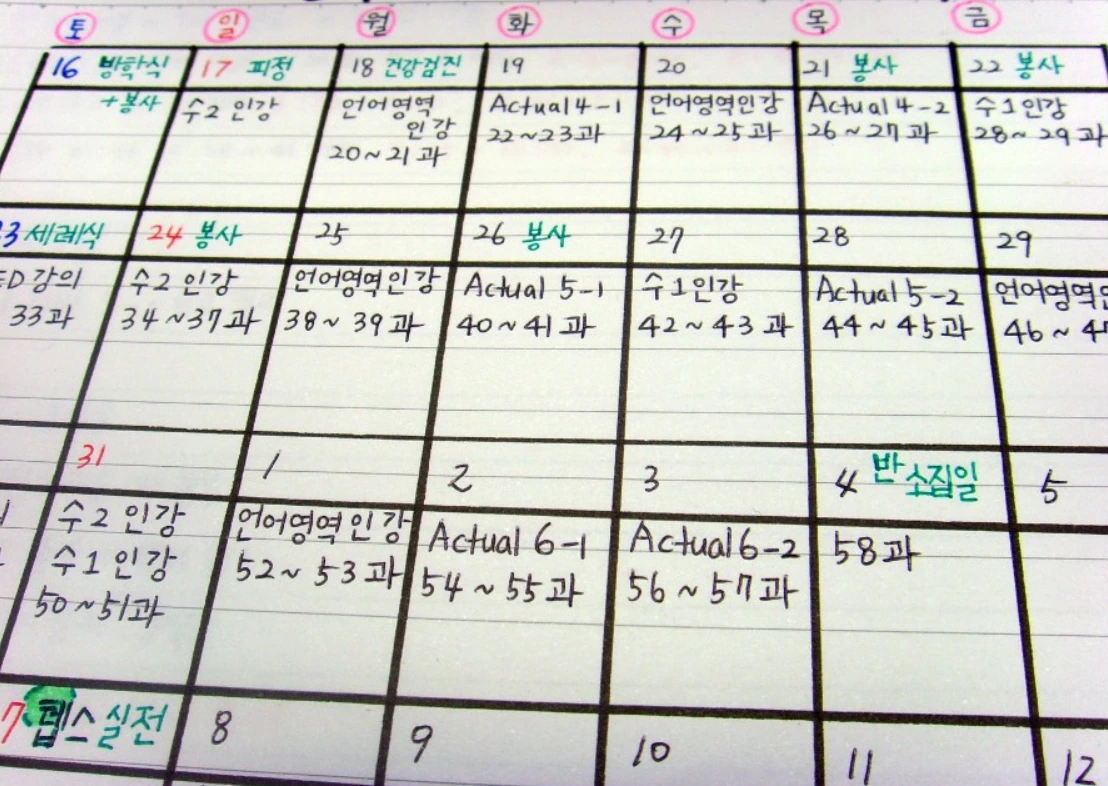 토 일 월 화 수 목 금
16 방학식 17 피정 18 건강검진 19 20 21 봉사 22 봉사
+봉사 수2 인강 언어영역 Actual 4-1 언어영역인강 Actual 4-2 수1인강
인강 22~23과 24~25과 26~27과 28~29과
20~21과
3 세례식 24 봉사 25 26 봉사 27 28 29
ED 강의 수2 인강 언어영역인강 Actual 5-1 수1인강 Actual 5-2 언어영역인
33과 34~37과 38~39과 40~41과 42~43과 44~45과 46~47
31 1 2 3 4 반소집일 5
수2 인강 언어영역인강 Actual 6-1 Actual 6-2 58과
수1 인강 52~53과 54~55과 56~57과
50~51과
7 텝스실전 8 9 10 11 12